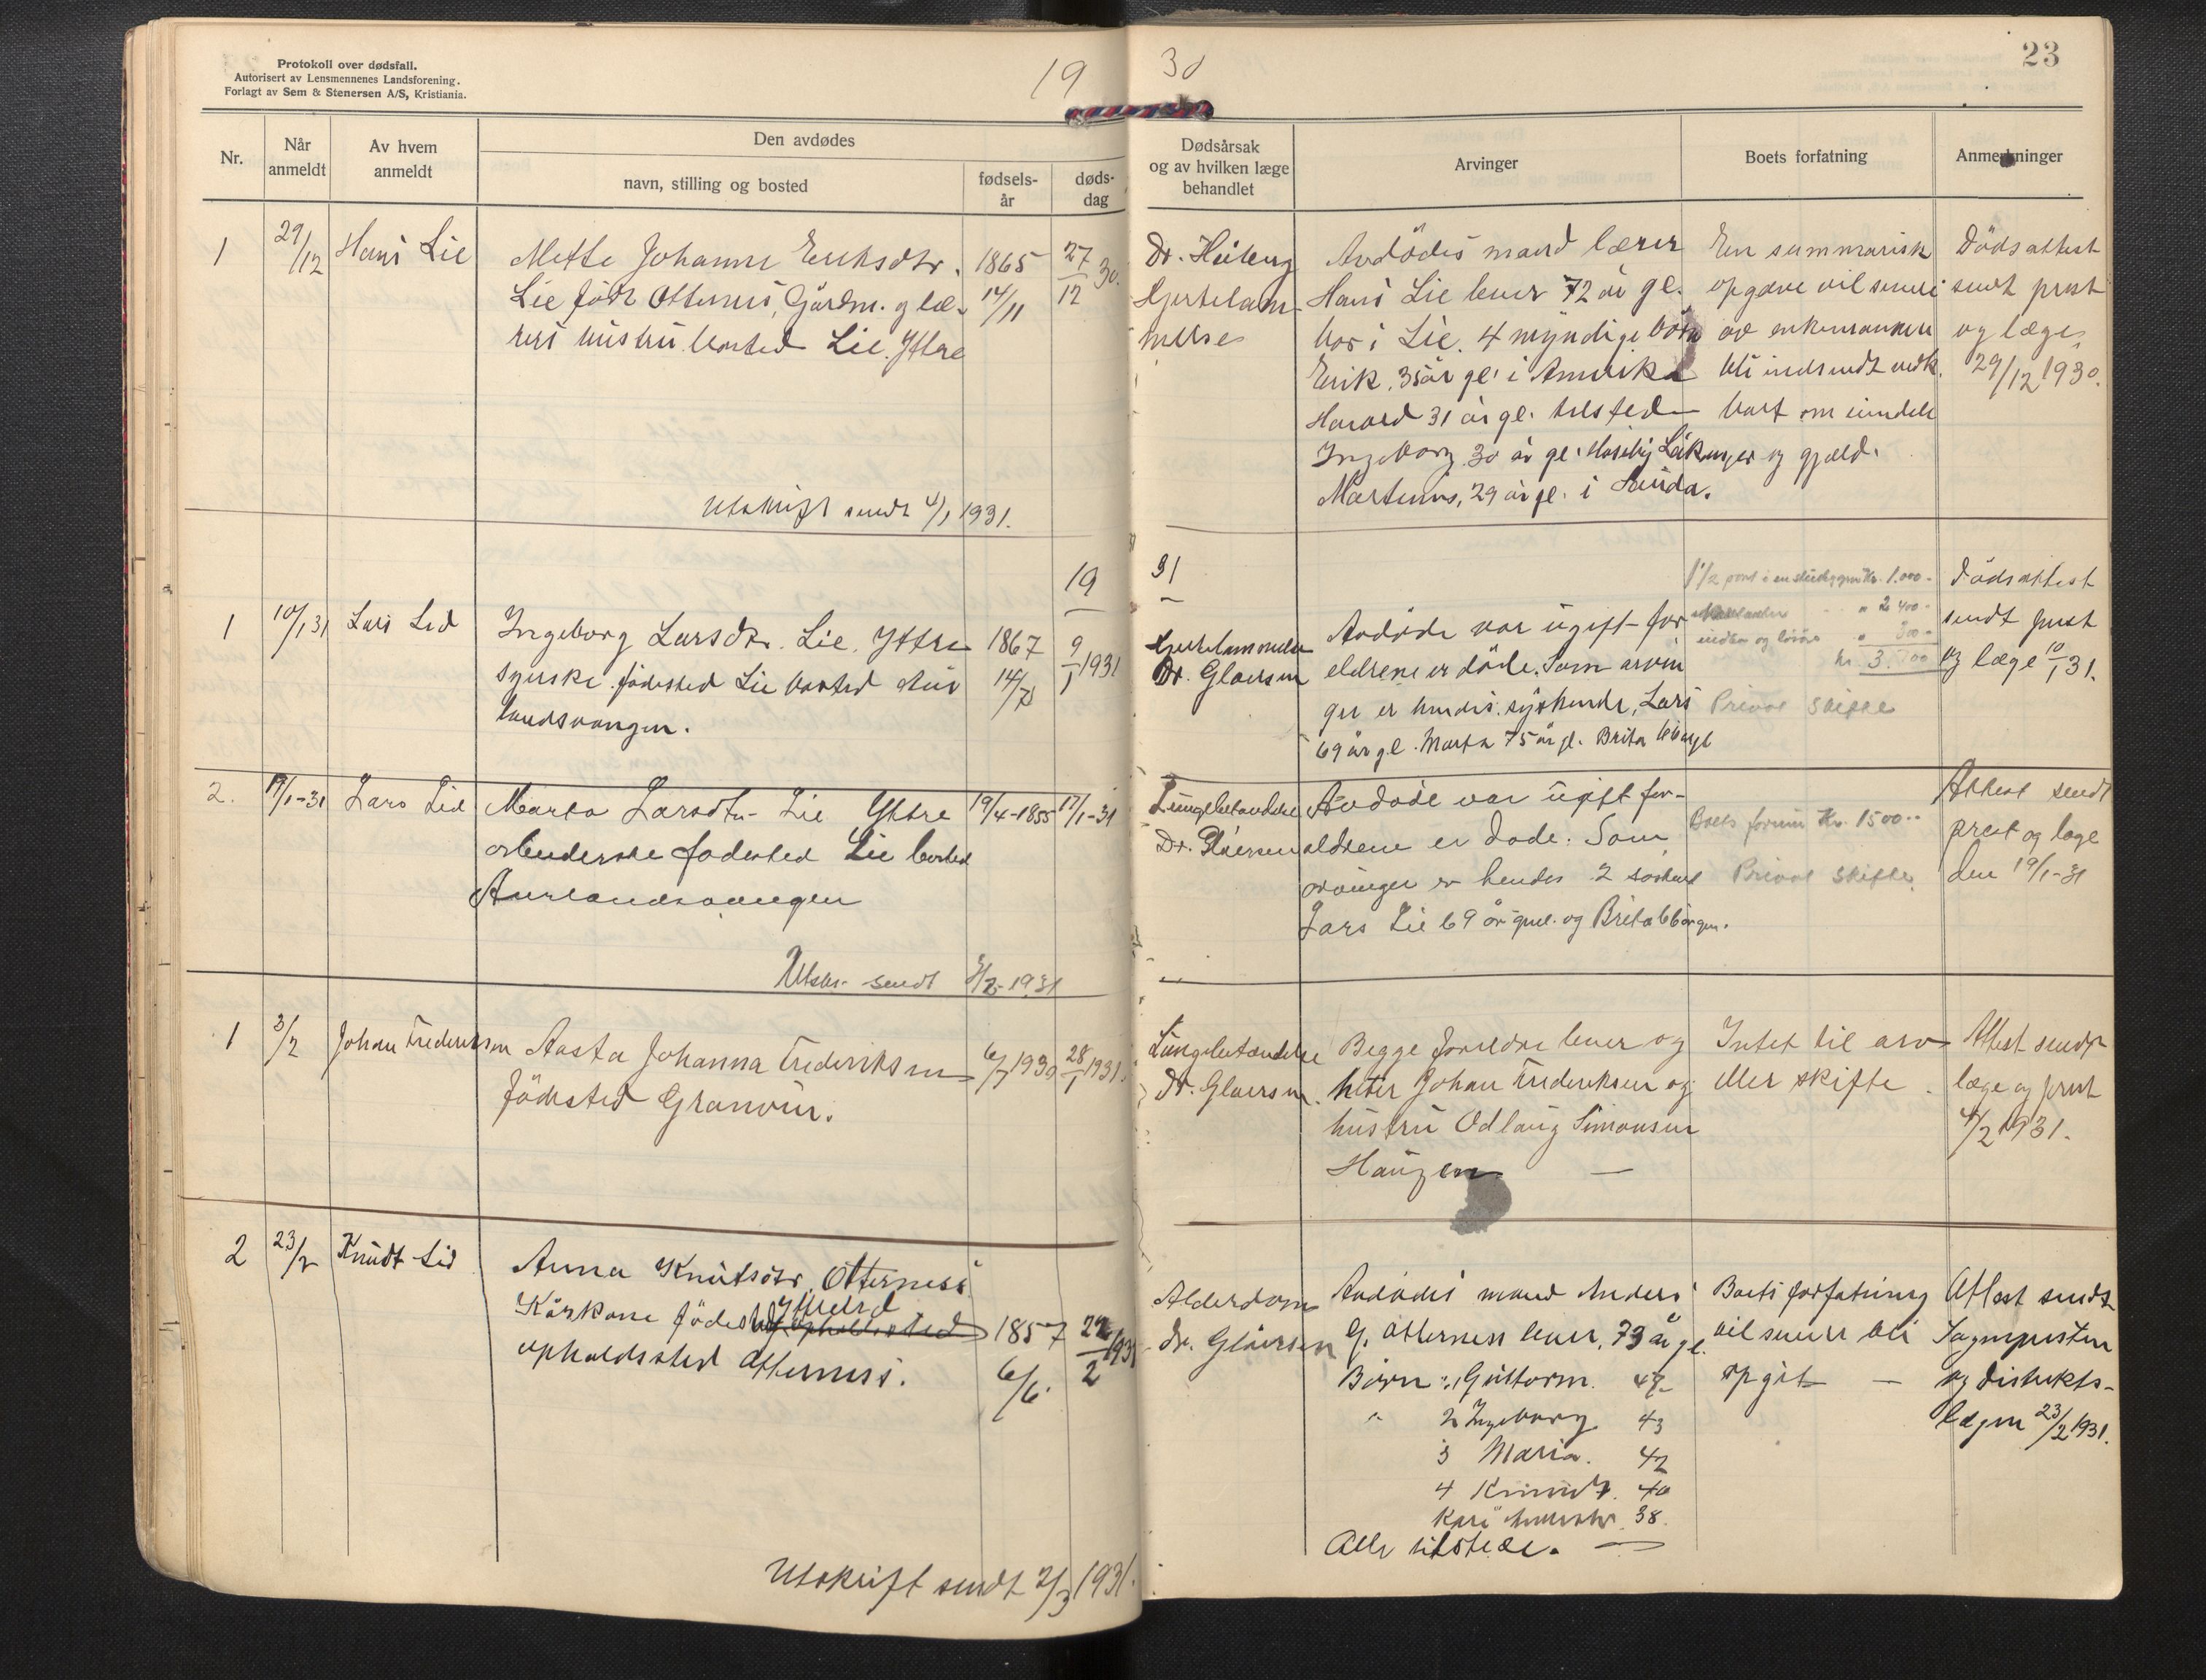 Protokoll over dødsfall.
Autorisert av Lensmennenes Landsforening.
Forlagt av Sem & Stenersen A/S, Kristiania.
19
30
23
Nr.
Når anmeldt
Av hvem anmeldt
Den avdødes
navn, stilling og bosted
fødsels-
år
døds-
dag
Dødsårsak
og av hvilken læge
behandlet
Arvinger
Boets forfatning
Anmerkninger
1
29/12
Hans Lie
Mette Johanne Eriksdtr.
Lie født Otternes, Gårdm. og læ-
rers hustru bosted Lie. Yttre
1865
14/11
27/12 30.
Dr. Heiberg
Hjertelam-
melse
Avdødes mand lærer
Hans Lie lever 72 år gl.
bor i Lie. 4 myndige børn
Erik. 35 år gl. i Amerika
Harald 31 år gl. tilsted
Ingeborg 30 år gl.
Martinus, 29 år gl. i Sauda.
En summarisk
opgave vil senere
av enkemannen
bli indsendt vedk.
bort om eiendele
og gjæld.
Dødsattest
sendt prest
og læge
29/12 1930.
Utskrift sendt 4/1 1931.
19
31
1
10/1 31
Lars Lie
Ingeborg Larsdtr. Lie. Yttre
syerske. fødested Lie bosted Aur
landsvangen.
1867
14/7
9/1 1931
Hjertelammelse
Dr. Glaersen
Avdøde var ugift for
eldrene er døde. Som arvin
ger er hendes syskende, Lars
69 år gl. Marta 75 år gl. Brita 66 årgl
1/2 part i en Kr. 1.000-
" 2400-
indbo og løsøre " 300-
kr. 3.700
Privat skifte
Dødsattest
sendt prest
og læge 10/1 31.
2.
19/1-31
Lars Lie
Marta Larsdtr- Lie Yttre
arbeiderske fødested Lie bosted
Aurlandsvangen
19/4-1855
17/1-31
Lungebetændelse
Dr. Glaersen
Avdøde var ugift for-
ældrene er døde. Som
arvinger er hendes 2 søsken
Lars Lie 69 år gml. og Brita 66 år gm.
Boets formue Kr. 1500--
Privat skifte
Attest sendt
prest og læge
den 19/1-31
Utskr- sendt 3/2-1931
1
3/2
Johan Frederiksen
Aasta Johanna Frederiksen
fødested Granvin.
6/7 1930
28/1 1931.
Lungebetændelse
Dr. Glaersen.
Begge foreldre lever og
heter Johan Frederiksen og
hustru Odlaug Simonsen
Haugen —
Intet til arv
eller skifte.
Attest sendt
læge og prest
4/2 1931.
2
23/2
Knudt Lie
Anna Knutsdtr. Otterness
Yttrelid
Kårkone fødested og opholdssted
opholdssted Otterness.
1857
6/6.
22/2 1931
Alderdom
Dr. Glaersen
Avdødes mand Anders
G. Otterness lever, 73 år gl.
Børn: 1 Guttorm.
" 2 Ingeborg 43
3 Maria. 42
4 Knudt. 40
Kari Andersdtr. 38.
Alle tilstede. —
Boets forfatning
vil senere bli
opgit —
Attest sendt
Sognepresten
og distrikts-
lægen 23/2 1931.
Utskrift sendt 2/3 1931.